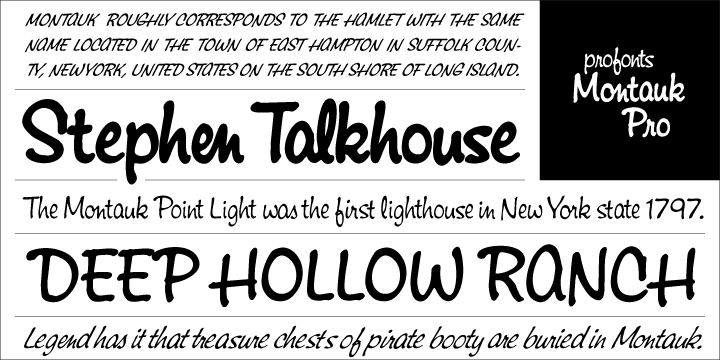 MONTAUK ROUGHLY CORRESPONDS TO THE HAMLET WITH THE SAME
NAME LOCATED IN THE TOWN OF EAST HAMPTON IN SUFFOLK COUN-
TY, NEWYORK, UNITED STATES ON THE SOUTH SHORE OF LONG ISLAND.
profonts
Montauk
Pro
Stephen Talkhouse
The Montauk Point Light was the first lighthouse in New York state 1797.
DEEP HOLLOW RANCH
Legend has it that treasure chests of pirate booty are buried in Montauk.